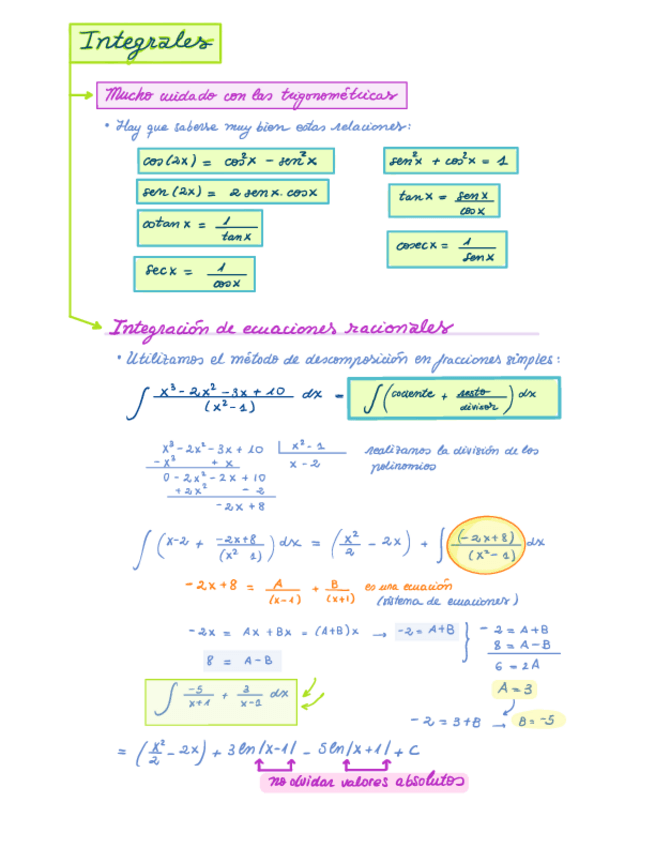 Integrales
Mucho cuidado con las trigonométricas
• Hay que saberse muy bien estas relaciones:
cos(2x) = cos²x - sen²x
sen²x + cos²x = 1
sen(2x) = 2 senx · cosx
tanx = senx / cosx
cotanx = 1 / tanx
cosecx = 1 / senx
secx = 1 / cosx
Integración de ecuaciones racionales
• Utilizamos el método de descomposición en fracciones simples:
∫ (x³ - 2x² - 3x + 10) / (x² - 1) dx = ∫ (cociente + resto / divisor) dx
x³ - 2x² - 3x + 10 | x² - 1 realizamos la división de los
- x³ + x x - 2 polinomios
0 - 2x² - 2x + 10
+ 2x² - 2
- 2x + 8
∫ (x - 2 + (-2x + 8) / (x² 1)) dx = (x²/2 - 2x) + ∫ (-2x + 8) / (x² - 1) dx
- 2x + 8 = A / (x - 1) + B / (x + 1) es una ecuación
(sistema de ecuaciones)
- 2x = Ax + Bx = (A+B)x → -2 = A+B } - 2 = A+B
8 = A - B 8 = A - B
6 = 2A
∫ -5 / (x+1) + 3 / (x-1) dx A = 3
- 2 = 3 + B → B = -5
= (x²/2 - 2x) + 3 ln|x - 1| - 5 ln|x + 1| + C
no olvidar valores absolutos